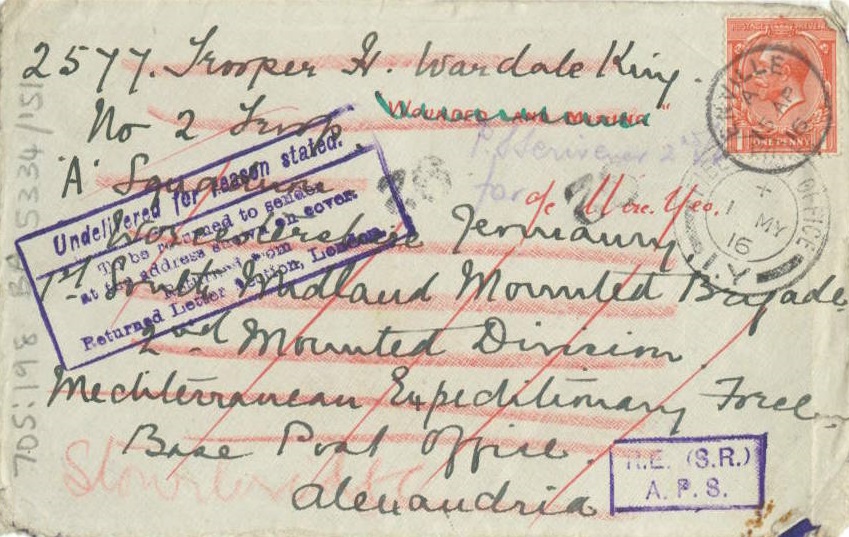 2577. Trooper H. Wardale King.
"WOUNDED AND MISSING"
No 2 Troop
'A' Squadron
Worcestershire Yeomanry.
1st South Midland Mounted Brigade
2nd Mounted Division
Mediterranean Expeditionary Force
Base Post Office.
Alexandria
Undelivered for reason stated.
To be returned to sender
at the address shown on cover.
Returned from
Returned Letter Section, London.
28
for
Worc. Yeo.
POSTAGE REVENUE
ONE PENNY
VILLE
AP
16
OFFICE
1 MY
16
I.Y
R.E. (S.R.)
A.P.S.
705:198 BA 5334/151